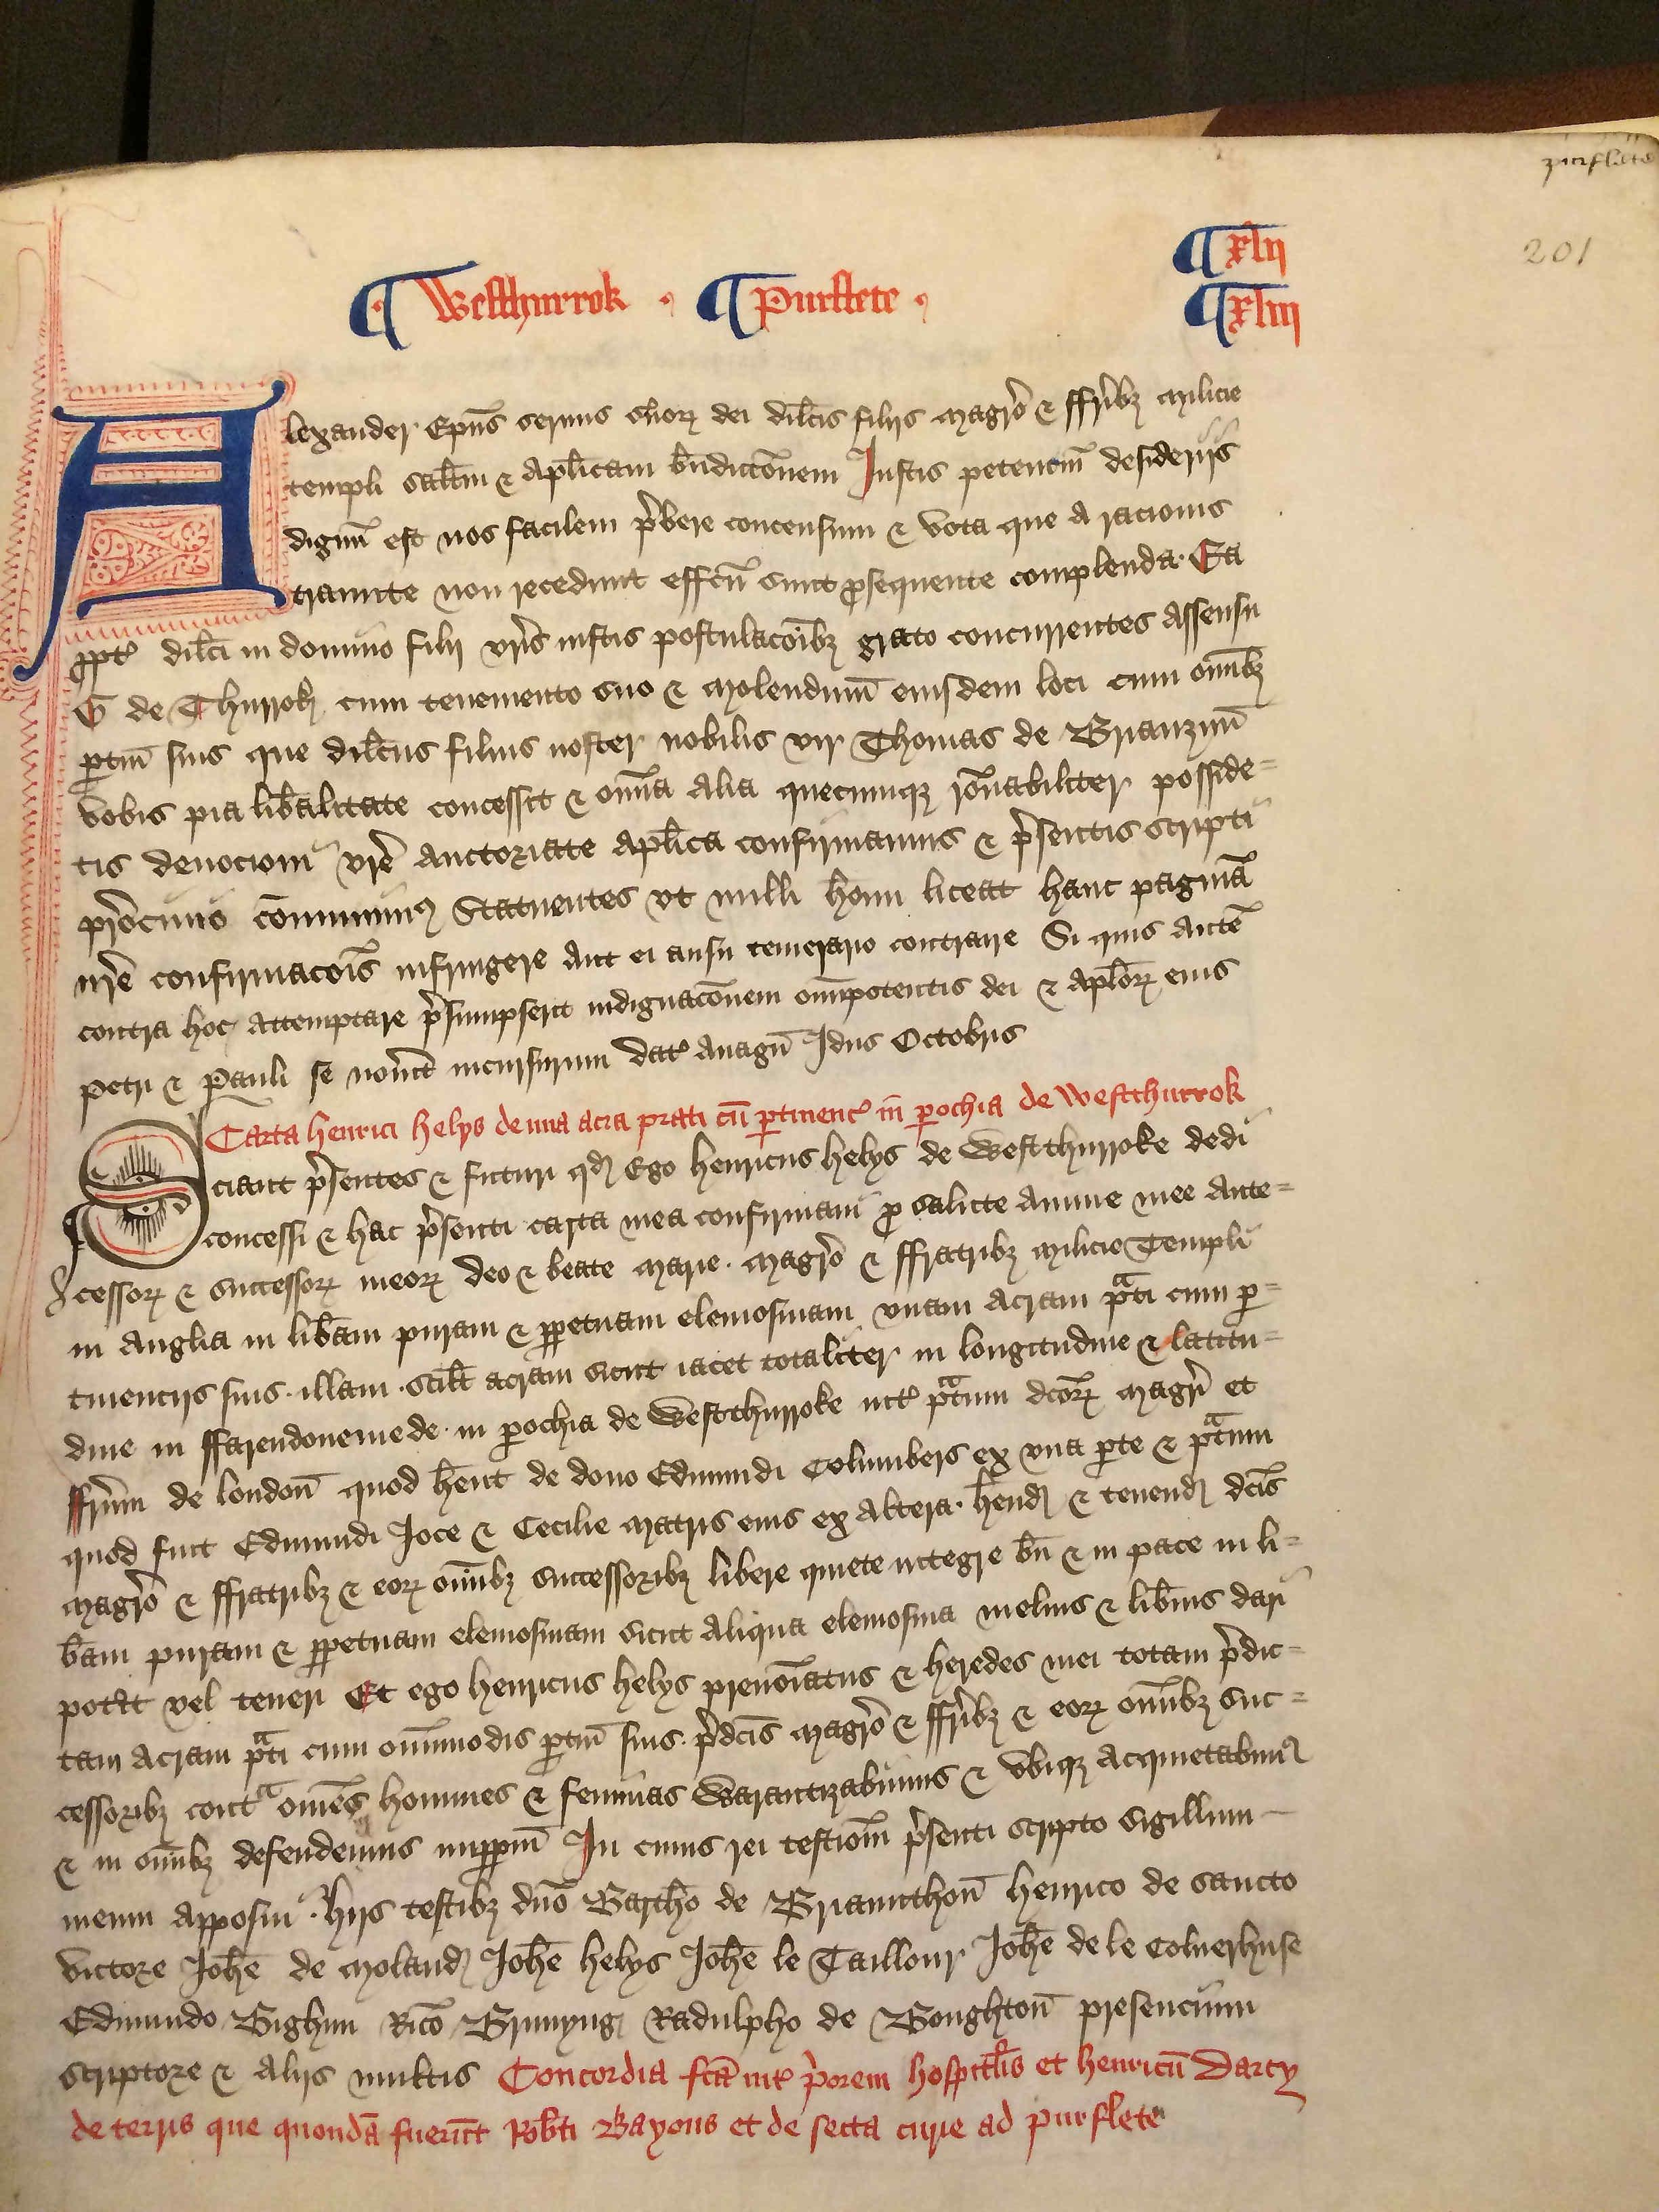 purflete
201
¶ Westhurrok · ¶ Purflete ·
¶ xlij
¶ xliij
Alexander Ep̄us seruus s̾uoꝝ dei dilc̄is filijs magr̄o & ffr̄ibꝫ milicie
templi salt̄m & ap̄licam bn̄dicc̄onem Iustis petenciū desiderijs
dignū est nos facilem p̾bere concensum & vota que a racionis
tramite non recedunt effc̄u sunt ꝓsequente complenda. Ea
ꝓpt̾ dilc̄i in domino filij vr̄is iustis postulac̄oibꝫ grato concurrentes assensu
G de Thurrok cum tenemento suo & molendinū eiusdem loci cum om̄ibꝫ
ꝑtin̄ suis que dilc̄us filius noster nobilis vir Thomas de Brianzun̄
vobis pia lib̾alitate concessit & om̄ia alia quecumqꝫ rōnabiliter posside=
tis deuocioni vr̄e auctoriate ap̄lica confirmamus & p̾sentis scripti
pr̄ocinio com̄unim⁹ Statuentes vt nulli hōm liceat hanc paginā
nr̄e confirmac̄ois infringere aut ei ausu temerario contraire Si quis autē
contra hoc attemptare p̾sumpserit indignac̄onem om̄ipotentis dei & ap̄loꝝ eius
Petri & Pauli se nou̾it incursurum Dat̾ Anagn̄ Idus Octobris
Carta henrici helys de una acra prati cū ꝑtinenc̾ in ꝑochia de Westthurrok
Sciant p̾sentes & futuri qd̄ Ego henricus helys de Westthurroke dedi
concessi & hac p̾senti carta mea confirmaui ꝓ salute anime mee ante=
cessoꝝ & successoꝝ meoꝝ deo & beate marie. magr̄o & ffratribꝫ milicie Templi
in anglia in lib̾am puram & ꝑpetuam elemosinam vnam acram pᵃti cum ꝑ=
tinencijs suis. illam. scil̄t acram sicut iacet totaliter in longitudine & latitu=
dine in ffarendonemede. in ꝑochia de Westthurroke int̾ pᵃtum dc̄oꝝ magr̄i et
ffr̄um de london̄ quod hēnt de dono Edmundi Columbers ex vna ꝑte & pᵃtum
quod fuit Edmundi Ioce & Cecilie matris eius ex altera. hēnd̄ & tenend̄ dc̄is
magr̄o & ffratribꝫ & eoꝝ om̄ibꝫ successoribꝫ libere quiete integre bn̄ & in pace in li=
b̾am puram & ꝑpetuam elemosinam sicut aliqua elemosina melius & lib̾ius dari
pot̾it vel teneri Et ego henricus helys prenoīatus & heredes mei totam p̾dic=
tam acram pᵃti cum om̄imodis ꝑtin̄ suis. p̾dc̄is magr̄o & ffr̄ibꝫ & eoꝝ om̄ibꝫ suc=
cessoribꝫ contᵃ om̄es homines & feminas Warantizabimus & vbiqꝫ acquietabim⁹
& in om̄ibꝫ defendemus inꝑpm̄ In cuius rei testiom̄ p̾senti scripto sigillum
meum apposui. hijs testibꝫ dn̄o Barth̄o de Brianncthon̄ henrico de sancto
victore Ioh̄e de moland̄ Ioh̄e helys Ioh̄e le Taillour Ioh̄e de le Coluerhuse
Edmundo Bighun Ric̄o Brunyng Radulpho de Boughton̄ presencium
scriptore & alijs multis Concordia fc̄a int̾ p̾orem hospital̄is et henricū Darcy
de terris que quondā fuer̄t Rob̄ti Bayous et de secta curie ad purflete